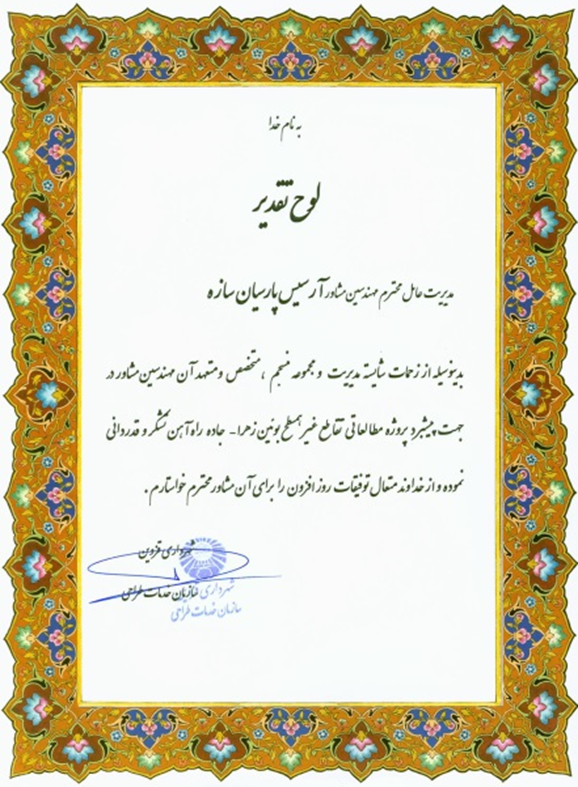 به نام خدا
لوح تقدیر
مدیریت عامل محترم مهندسین مشاور آرسیس پارسیان سازه
بدینوسیله از زحمات شایسته مدیریت و مجموعه منسجم ، متخصص و متعهد آن مهندسین مشاور در
جهت پیشبرد پروژه مطالعاتی تقاطع غیر همسطح بوئین زهرا - جاده راه آهن تشکر و قدردانی
نموده و از خداوند متعال توفیقات روز افزون را برای آن مشاور محترم خواستارم .
شهرداری قزوین
سازمان خدمات طراحی
شهرداری
سازمان خدمات طراحی